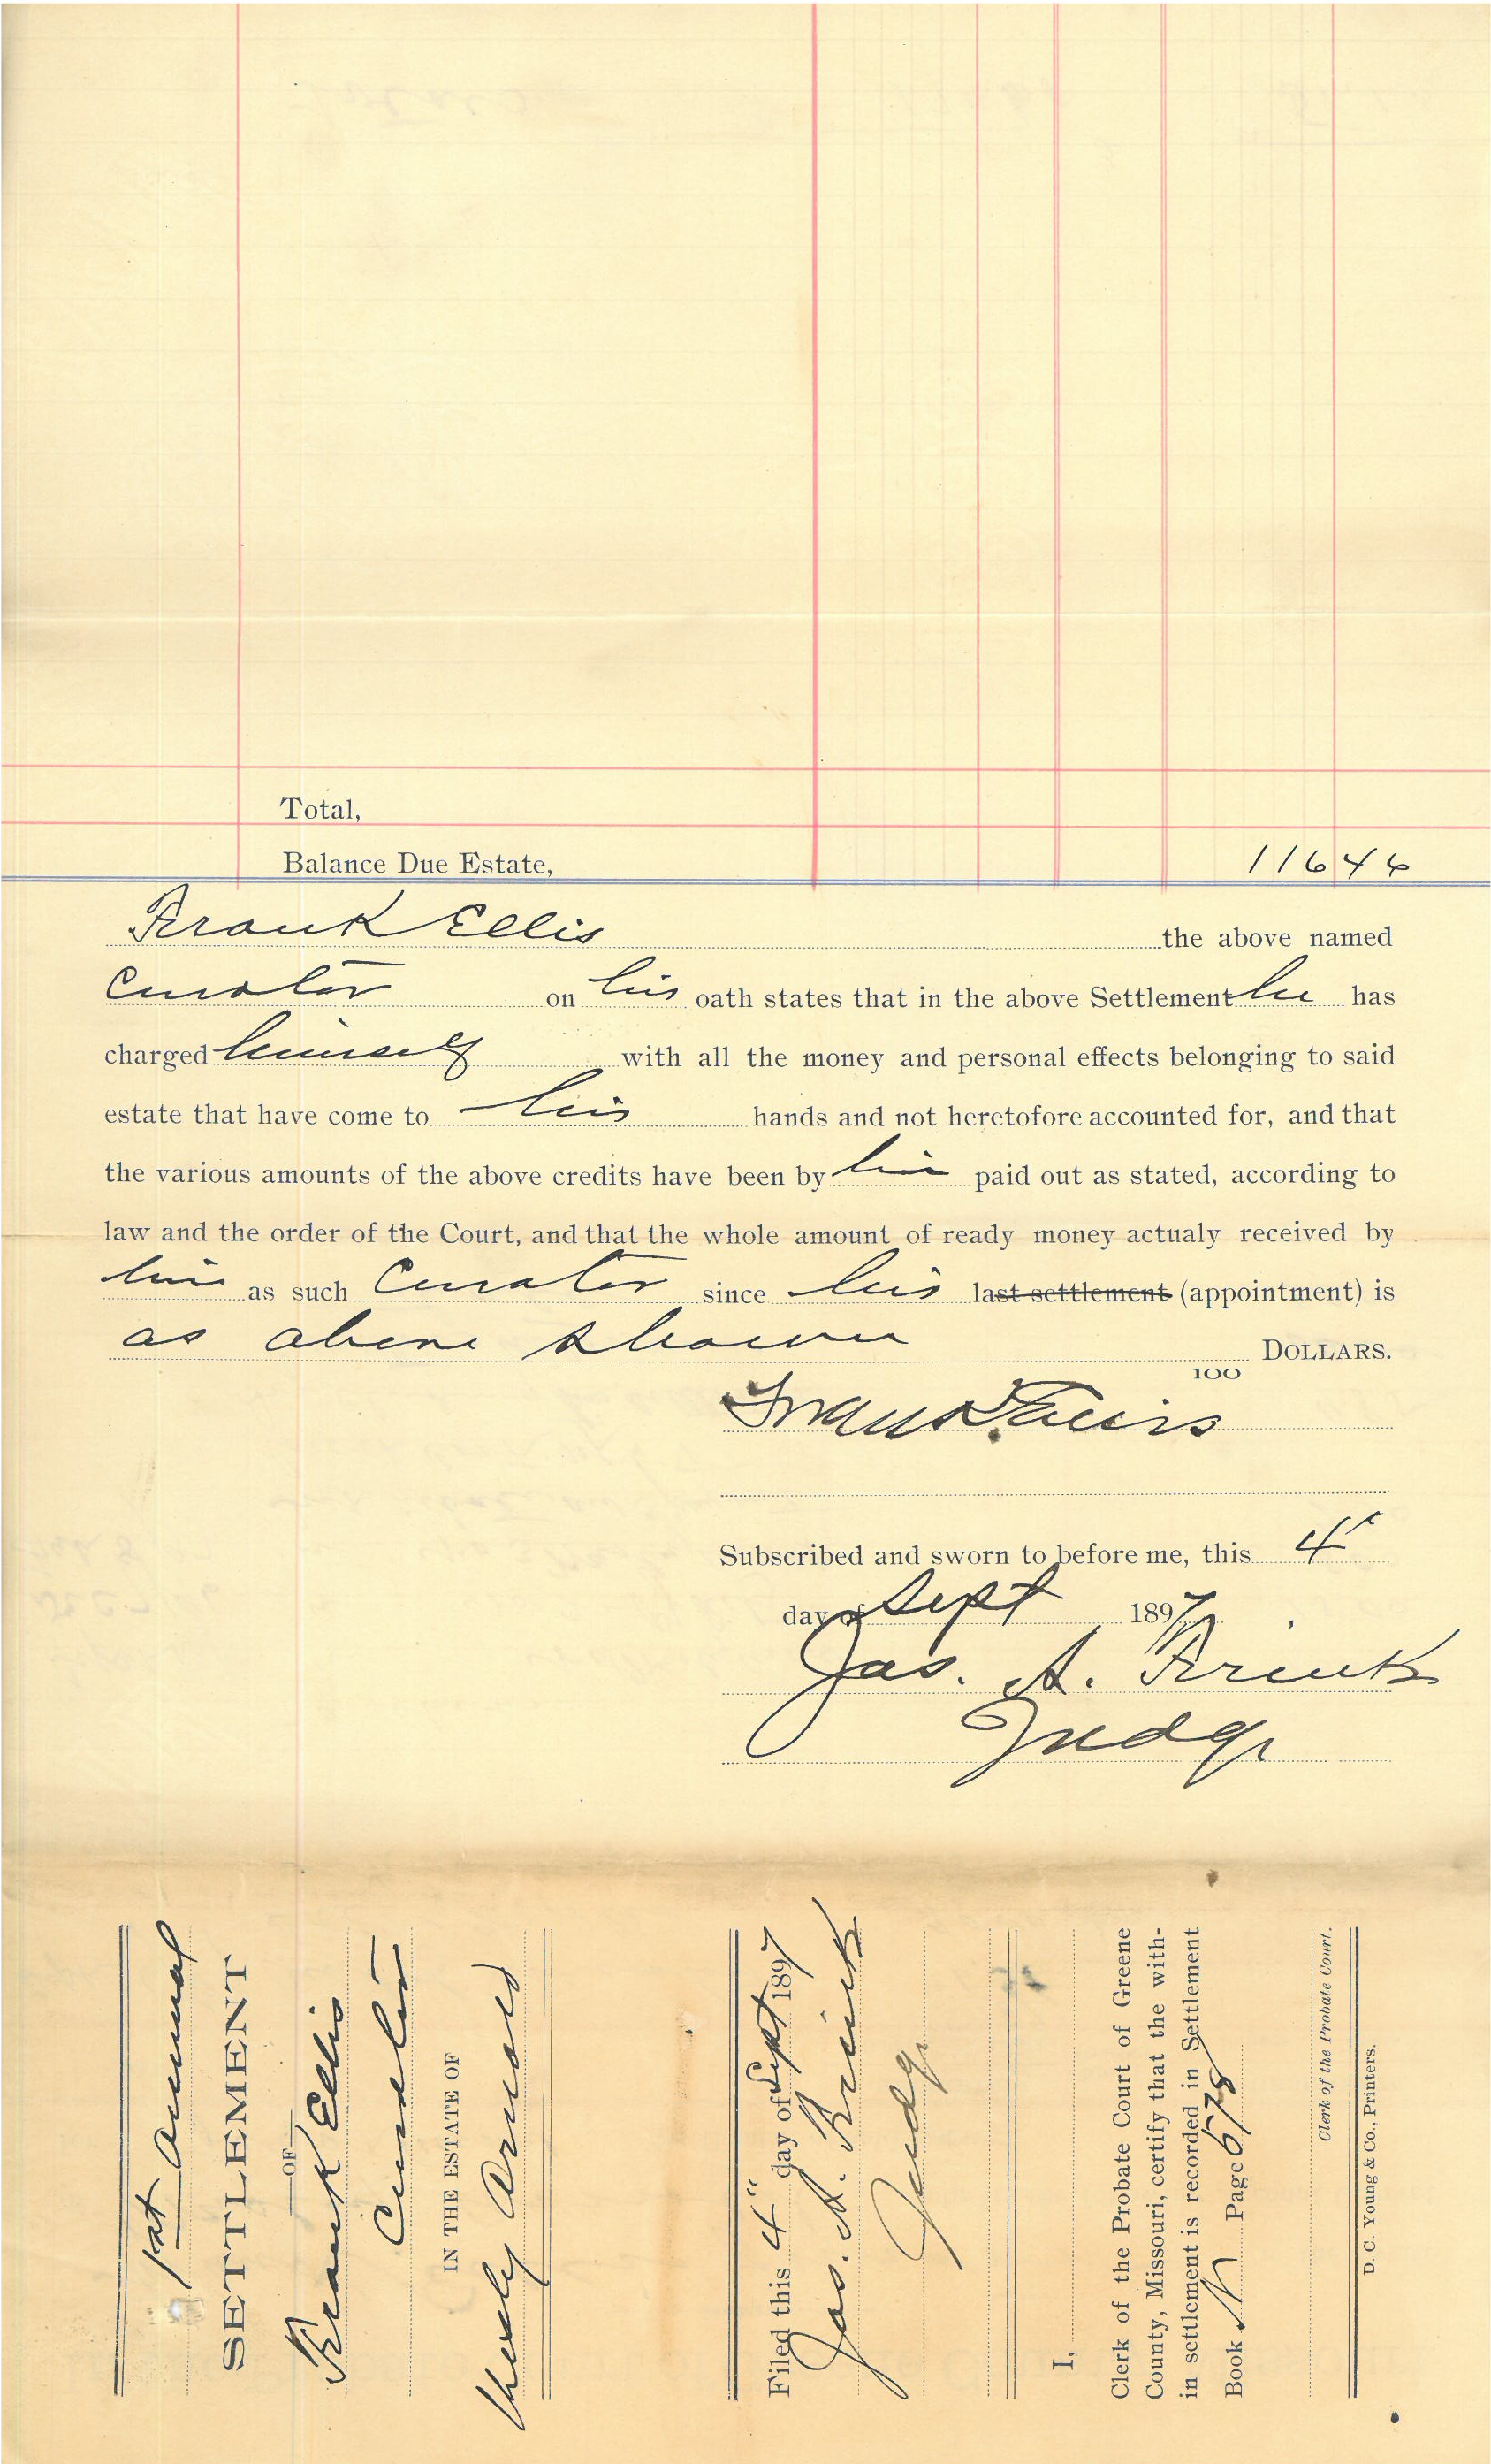 Total,
Balance Due Estate, 116 46
Frank Ellis the above named
Curator on his oath states that in the above Settlement he has
charged himself with all the money and personal effects belonging to said
estate that have come to his hands and not heretofore accounted for, and that
the various amounts of the above credits have been by him paid out as stated, according to
law and the order of the Court, and that the whole amount of ready money actualy received by
him as such Curator since his last settlement (appointment) is
as above shown DOLLARS.
100
Frank Ellis
Subscribed and sworn to before me, this 4"
day of Sept 1897
Jas. A. Frink
Judge
1st Annual
SETTLEMENT
OF
Frank Ellis
Curator
IN THE ESTATE OF
Wesly Arnold
Filed this 4" day of Sept 1897
Jas. A. Frink
Judge
I,
Clerk of the Probate Court of Greene
County, Missouri, certify that the with-
in settlement is recorded in Settlement
Book N Page 578
Clerk of the Probate Court.
D. C. Young & Co., Printers.